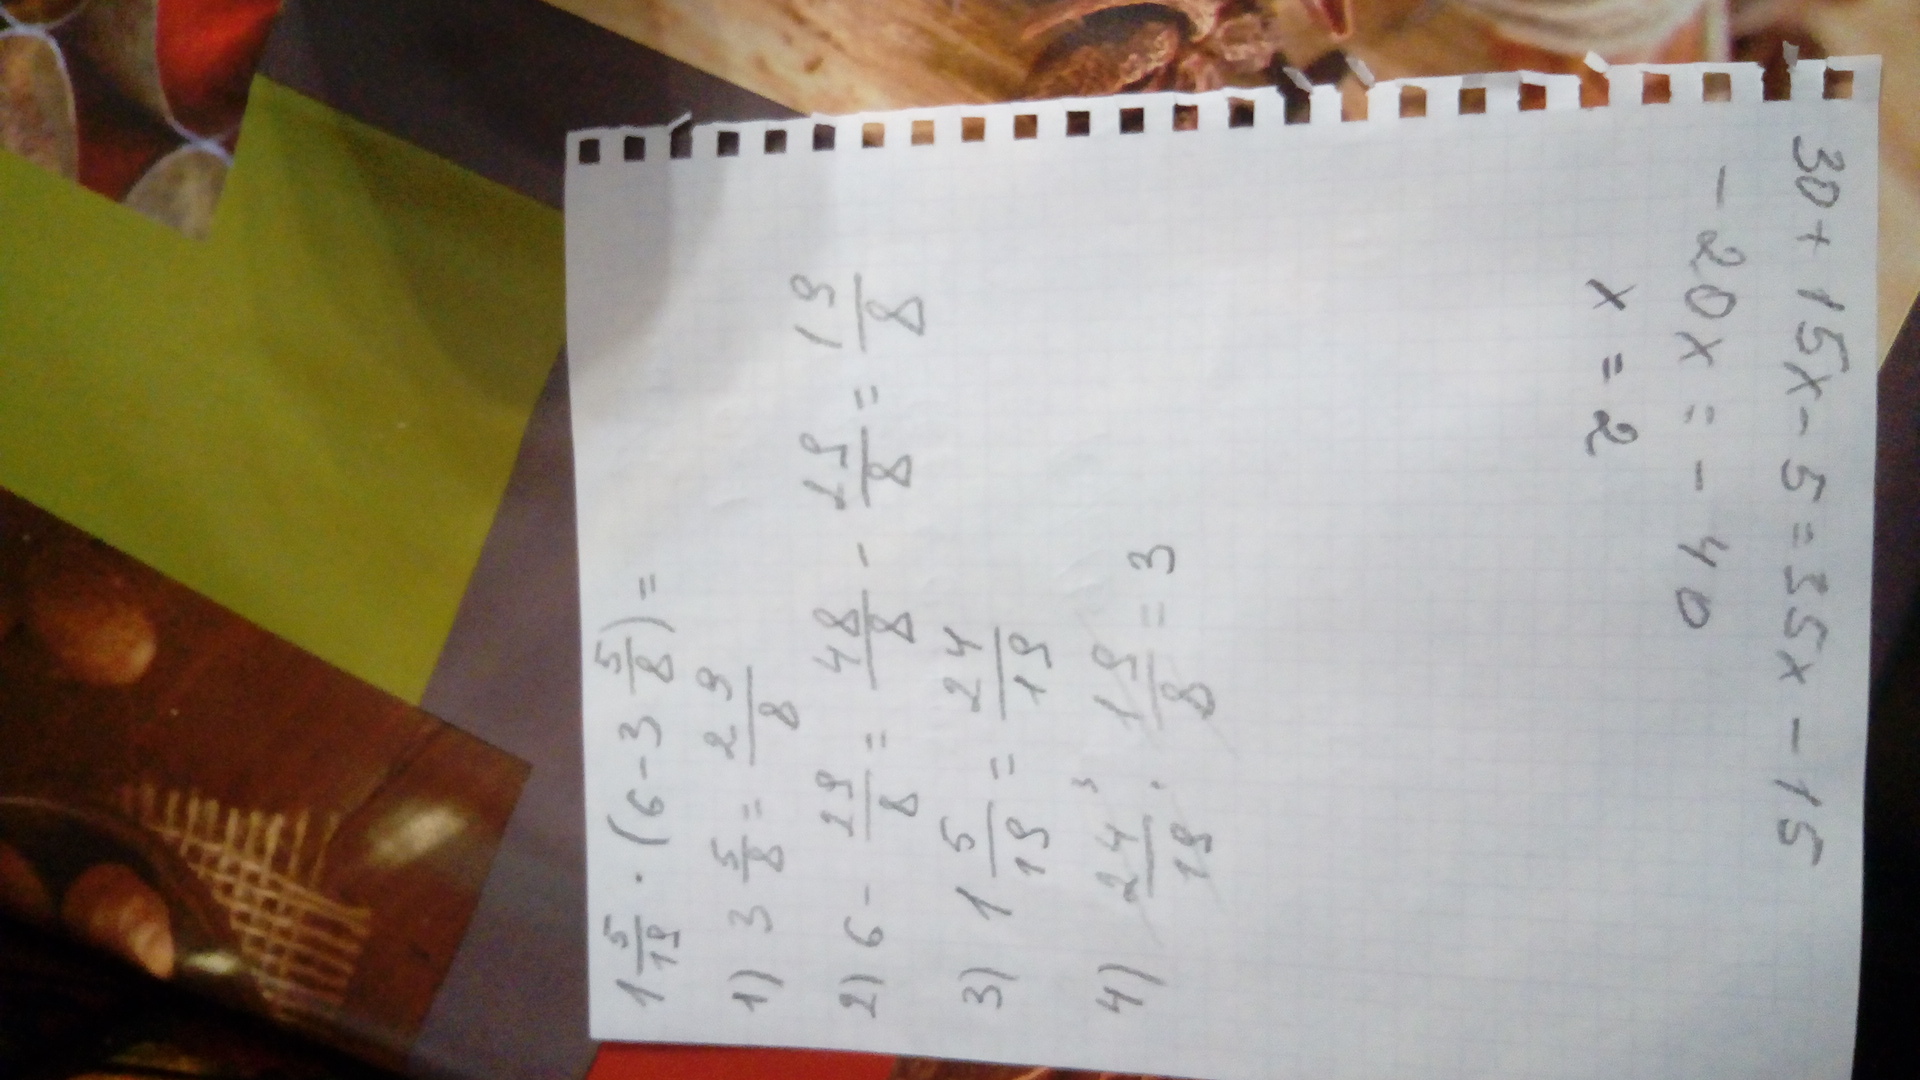 1 5/19 · (6 - 3 5/8) =
1) 3 5/8 = 29/8
2) 6 - 29/8 = 48/8 - 29/8 = 19/8
3) 1 5/19 = 24/19
4) 24/19 ³ · 19/8 = 3
30 + 15x - 5 = 35x - 15
- 20x = - 40
x = 2